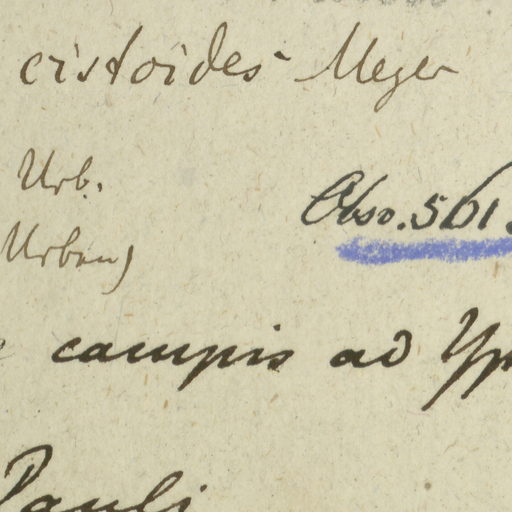 cistoides Meyer
Urb.
Obs. 561
Urban)
campis ad Yp
Pauli